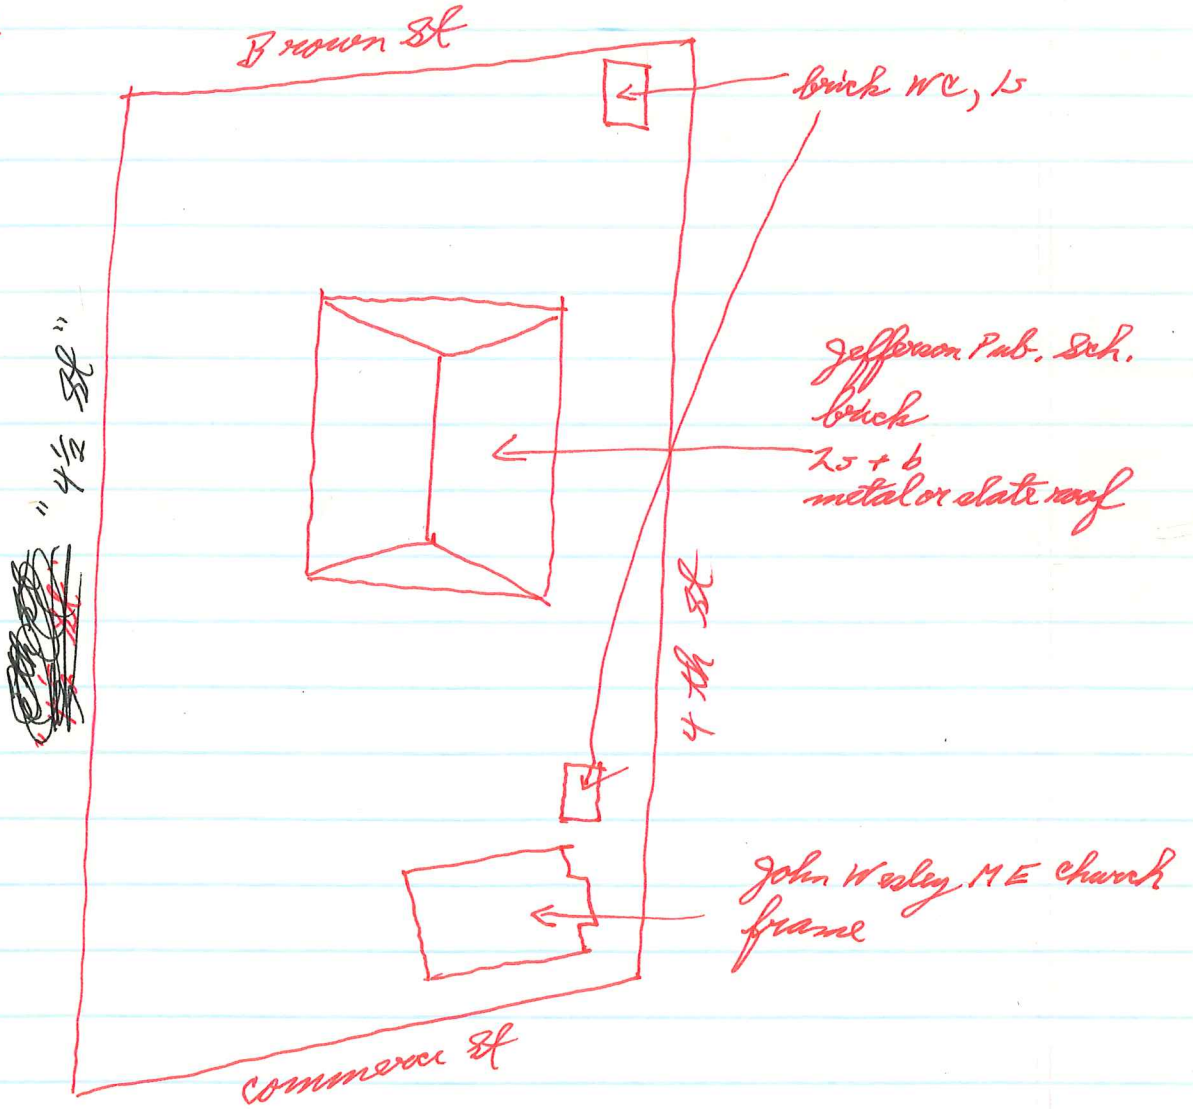 Brown St
brick WC, 1s
Jefferson Pub. Sch.
brick
2s + b
metal or slate roof
" 4½ St "
4th St
John Wesley ME Church
frame
Commerce St